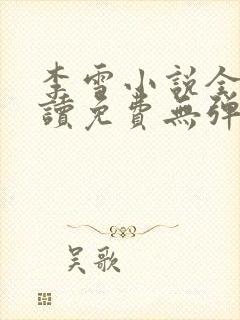 李雪小说全
讀免費無弹
吴歌